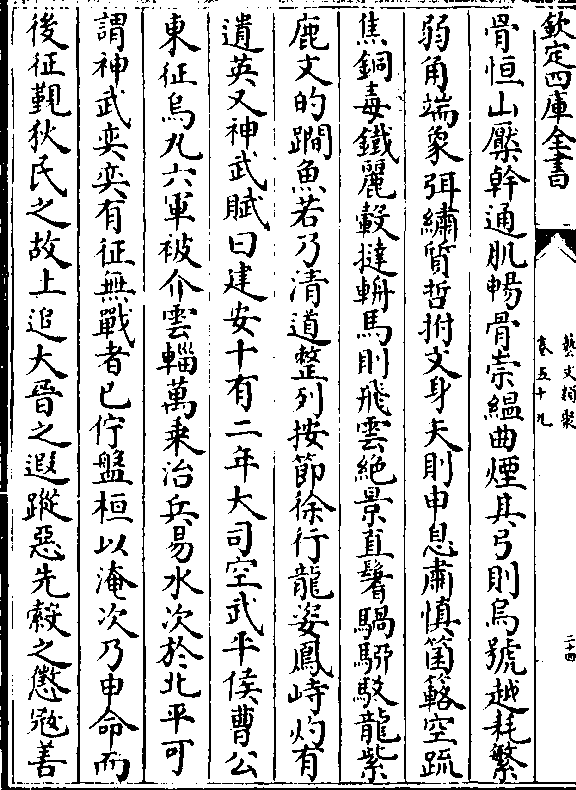 欽定四庫全書
藝文類聚
卷五十九
二十四
骨恒山㡳幹通肌暢骨崇緼曲煙其弓則烏號越耗繁
弱角端象弭繡質晢拊文身矢則申息肅慎箘簵空疏
焦銅毒鐵麗轂𢷤輈馬則飛雲絶景直鬐騧駵駁龍紫
鹿文的𨅊魚若乃清道整列按節徐行龍姿鳳峙灼有
遺英又神武賦曰建安十有二年大司空武平侯曹公
東征烏丸六軍被介雲輜萬乘治兵易水次於北平可
謂神武奕奕有征無戰者已佇盤桓以淹次乃申命而
後征覲狄民之故土追大晉之遐蹤惡先縠之懲寇善